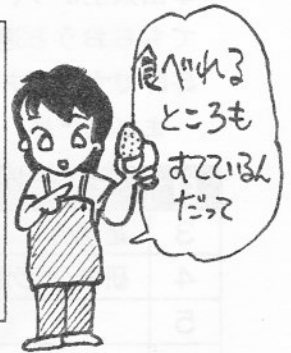 食べれる
ところも
すてているん
だって